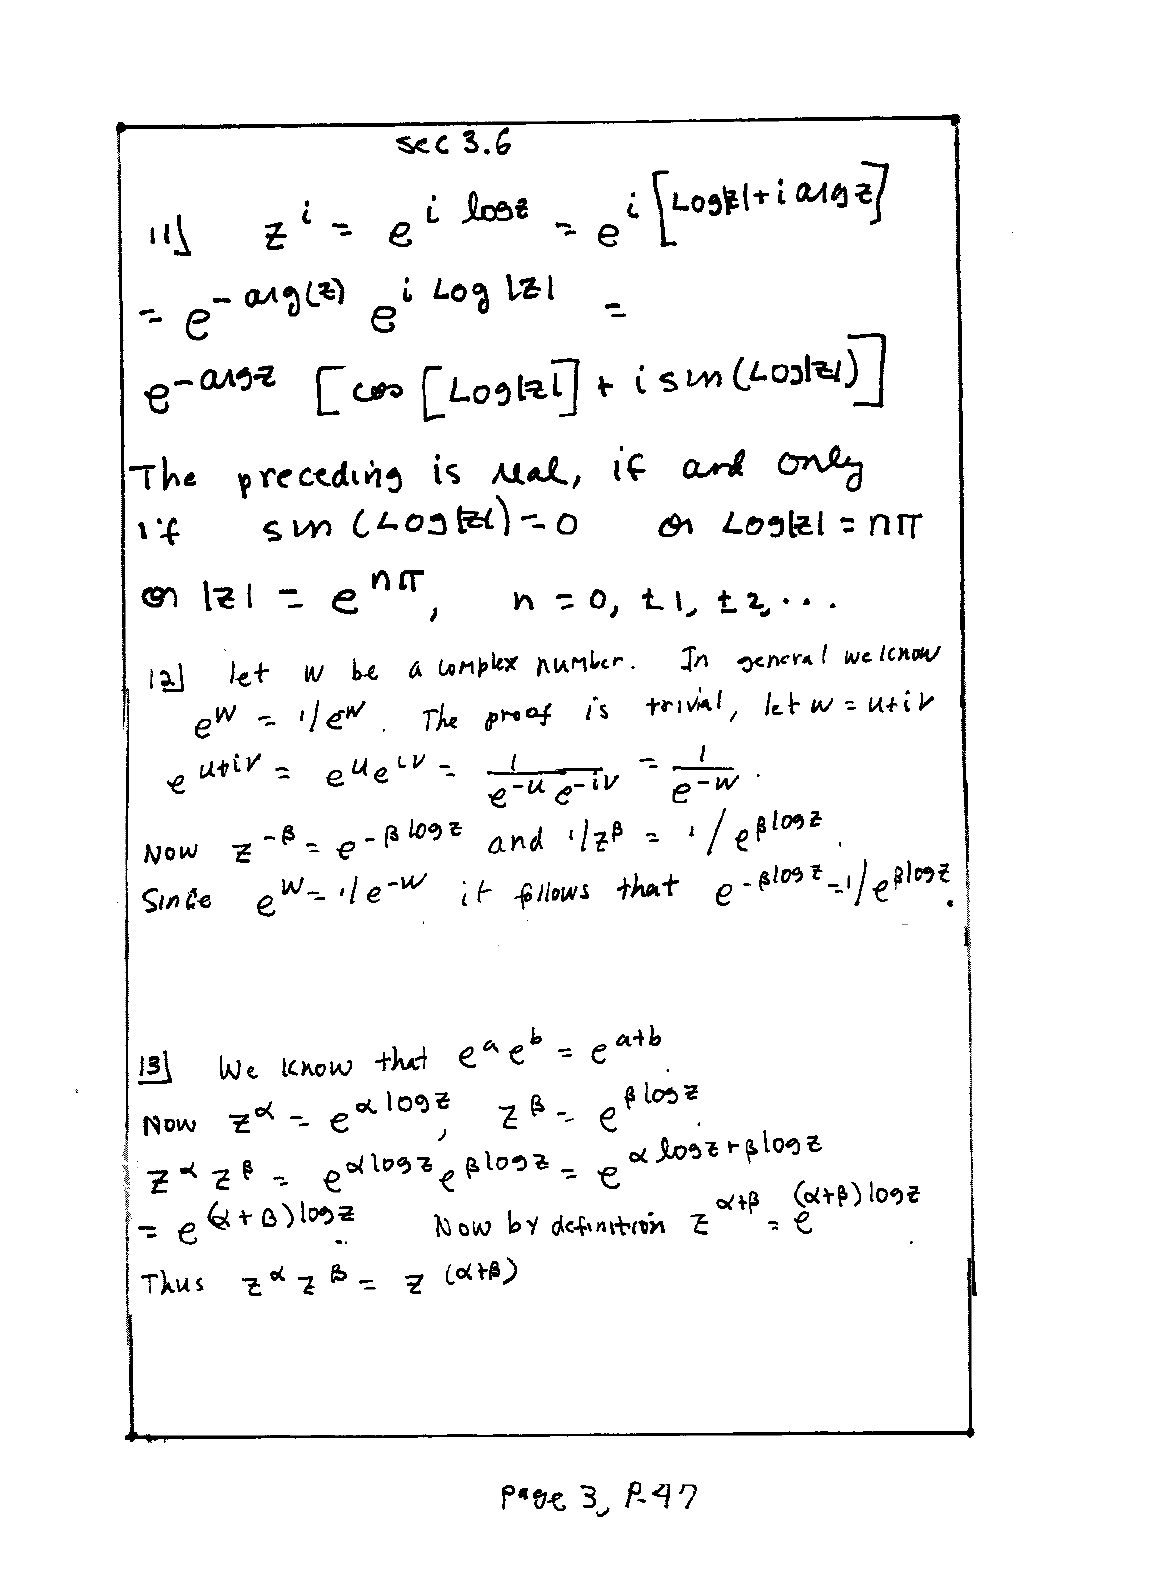 sec 3.6
11] z^i = e^{i log z} = e^{i [Log|z| + i arg z]}
= e^{-arg(z)} e^{i Log |z|} =
e^{-arg z} [cos [Log|z|] + i sin (Log|z|)]
The preceding is real, if and only
if sin (Log|z|) = 0 or Log|z| = nπ
or |z| = e^{nπ}, n = 0, ±1, ±2, ...
12] let w be a complex number. In general we know
e^w = 1/e^w. The proof is trivial, let w = u+iv
e^{u+iv} = e^u e^{iv} = \frac{1}{e^{-u} e^{-iv}} = \frac{1}{e^{-w}}.
Now z^{-β} = e^{-β log z} and 1/z^β = 1/e^{β log z}.
Since e^w = 1/e^{-w} it follows that e^{-β log z} = 1/e^{β log z}.
13] We know that e^a e^b = e^{a+b}.
Now z^α = e^{α log z}, z^β = e^{β log z}
z^α z^β = e^{α log z} e^{β log z} = e^{α log z + β log z}
= e^{(α+β) log z} Now by definition z^{α+β} = e^{(α+β) log z}.
Thus z^α z^β = z^{(α+β)}
Page 3, P.47